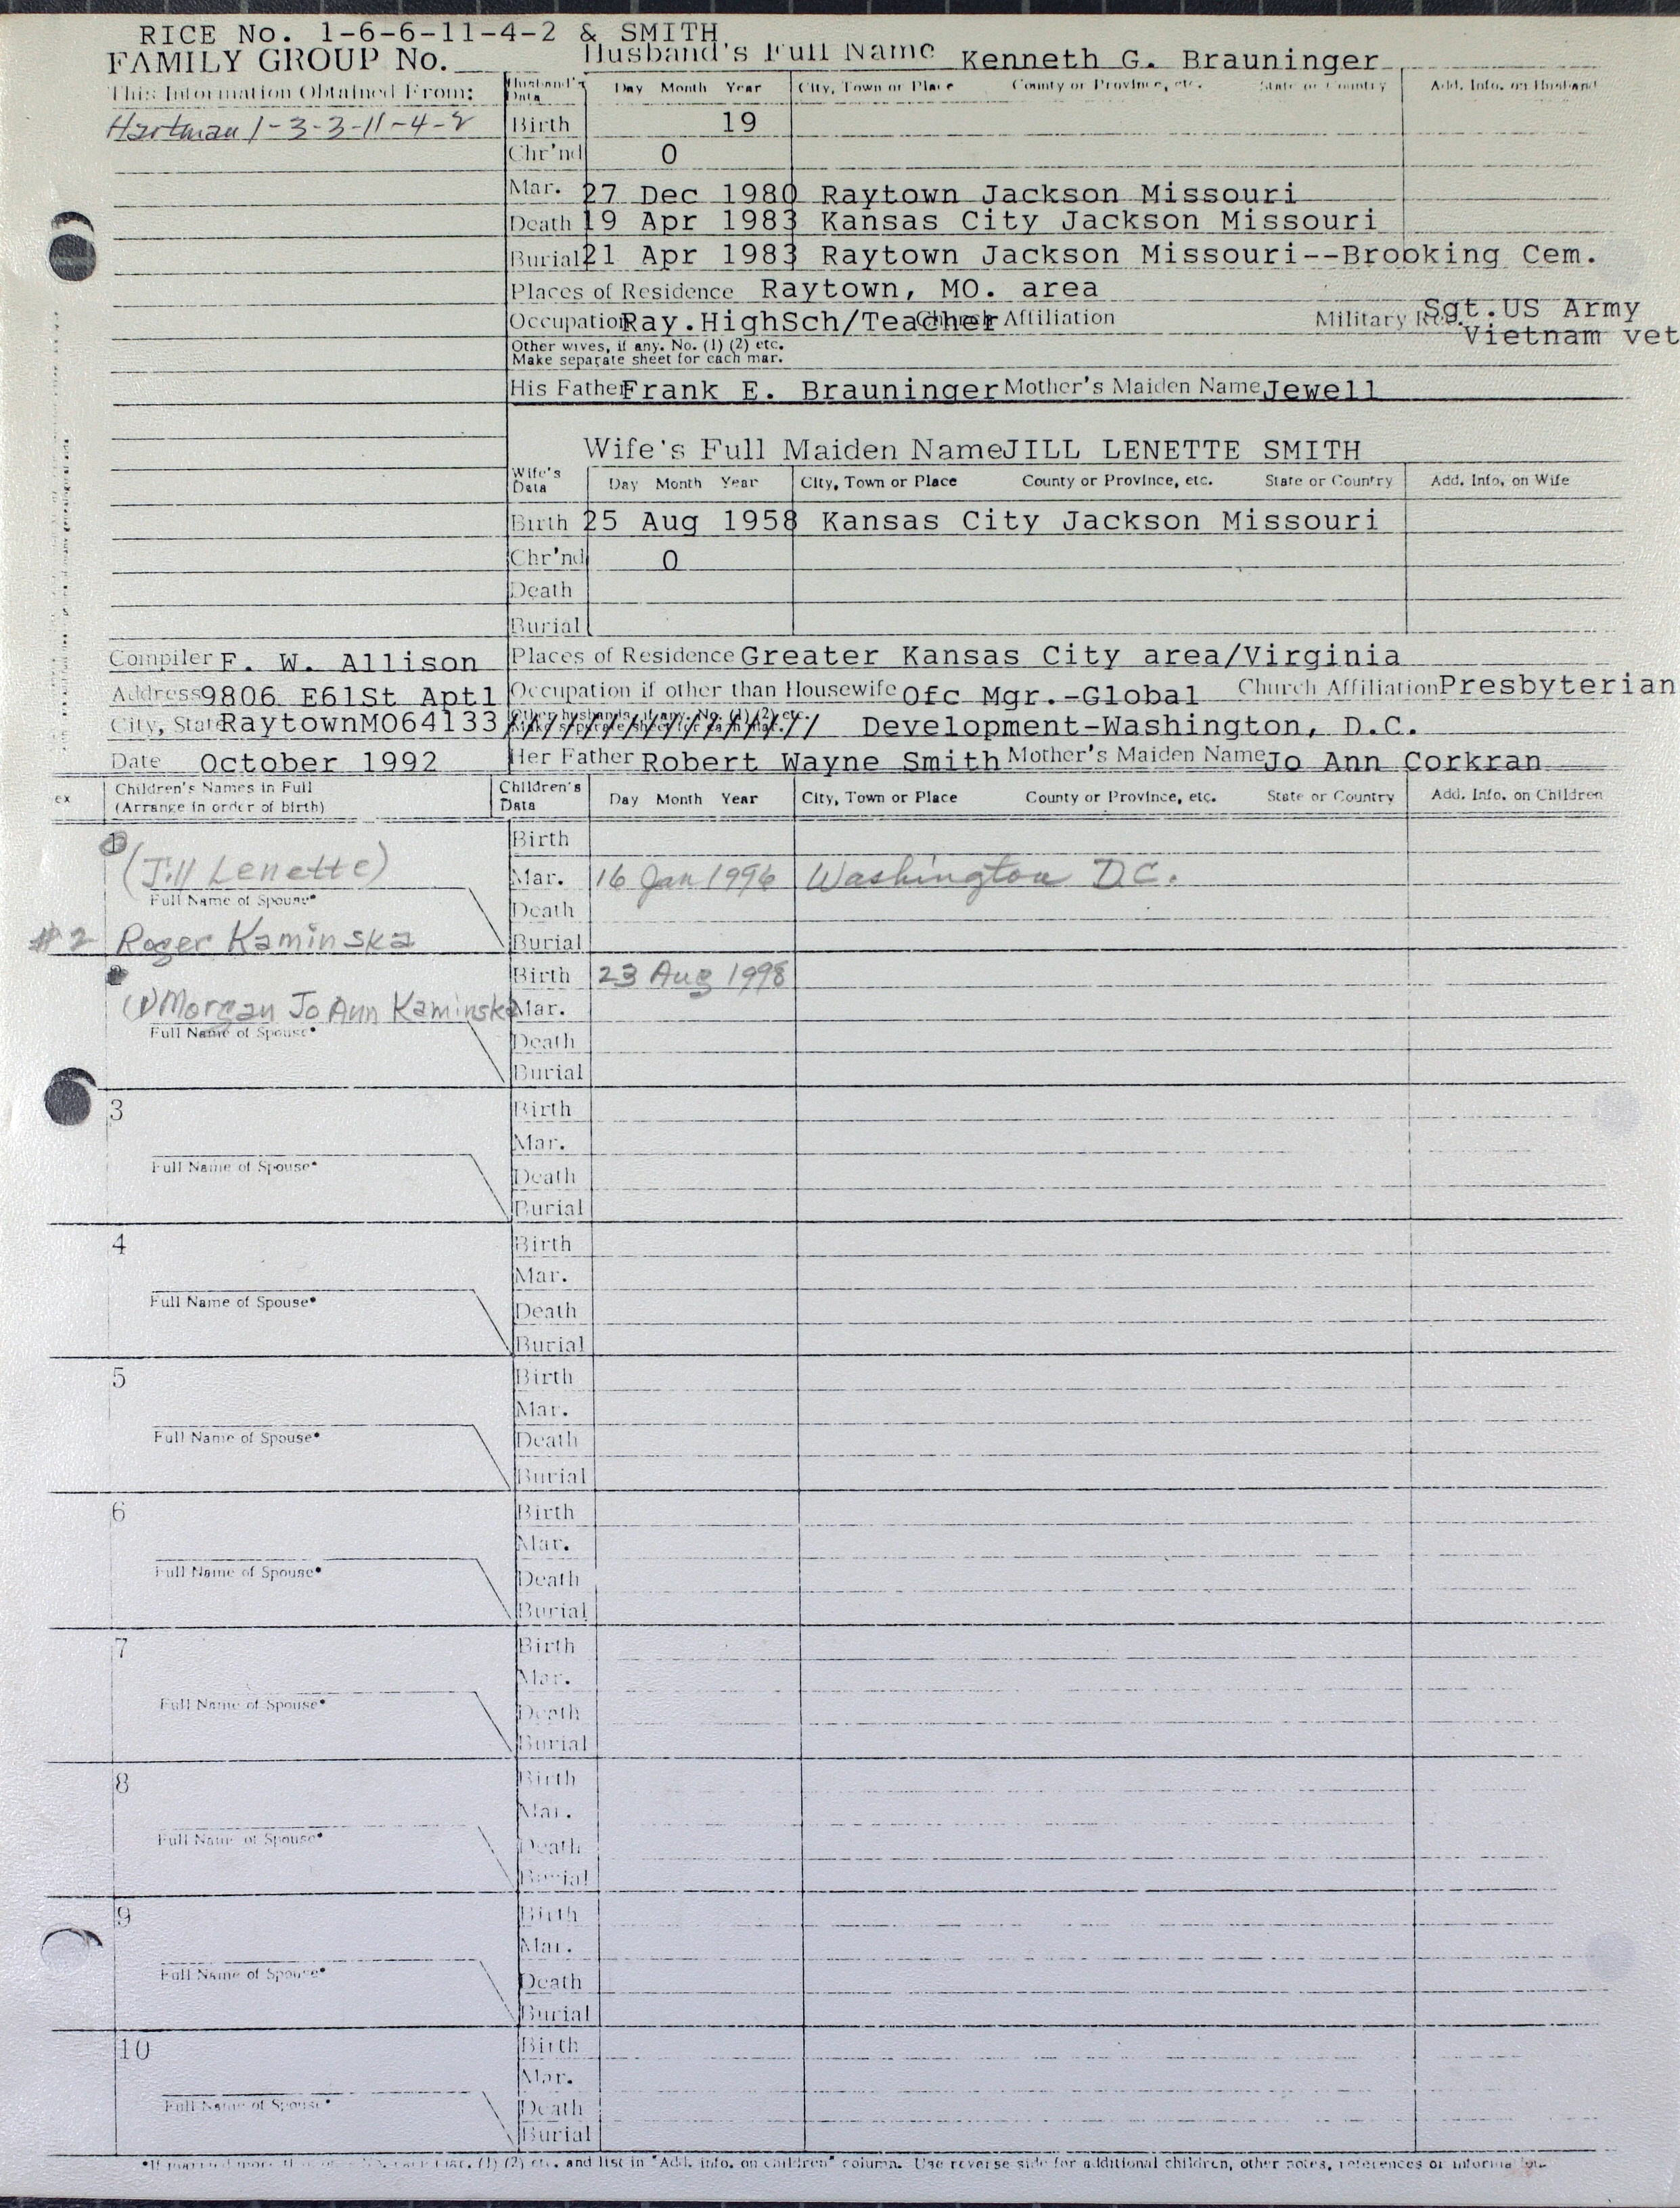 RICE No. 1-6-6-11-4-2 & SMITH
FAMILY GROUP No. Husband's Full Name Kenneth G. Brauninger
This Information Obtained From: Husband's Data Day Month Year City, Town or Place County or Province, etc. State or Country Add. Info. on Husband
Hartman 1-3-3-11-4-2 Birth 19
Chr'nd 0
Mar. 27 Dec 1980 Raytown Jackson Missouri
Death 19 Apr 1983 Kansas City Jackson Missouri
Burial 21 Apr 1983 Raytown Jackson Missouri--Brooking Cem.
Places of Residence Raytown, MO. area
Occupation Ray.HighSch/Teacher Church Affiliation Military Rec. Sgt.US Army
Vietnam vet
Other wives, if any. No. (1) (2) etc.
Make separate sheet for each mar.
His Father Frank E. Brauninger Mother's Maiden Name Jewell
Wife's Full Maiden Name JILL LENETTE SMITH
Wife's Data Day Month Year City, Town or Place County or Province, etc. State or Country Add. Info. on Wife
Birth 25 Aug 1958 Kansas City Jackson Missouri
Chr'nd 0
Death
Burial
Compiler F. W. Allison Places of Residence Greater Kansas City area/Virginia
Address 9806 E61St Apt1 Occupation if other than Housewife Ofc Mgr.-Global Church Affiliation Presbyterian
City, State RaytownMO64133 Other husbands, if any. No. (1) (2) etc. Development-Washington, D.C.
Date October 1992 Her Father Robert Wayne Smith Mother's Maiden Name Jo Ann Corkran
ex Children's Names in Full Children's Data Day Month Year City, Town or Place County or Province, etc. State or Country Add. Info. on Children
(Arrange in order of birth)
1 Birth
(Jill Lenette) Mar. 16 Jan 1996 Washington D.C.
Full Name of Spouse* Death
#2 Roger Kaminska Burial
Birth 23 Aug 1998
(1) Morgan Jo Ann Kaminska Mar.
Full Name of Spouse* Death
Burial
3 Birth
Mar.
Full Name of Spouse* Death
Burial
4 Birth
Mar.
Full Name of Spouse* Death
Burial
5 Birth
Mar.
Full Name of Spouse* Death
Burial
6 Birth
Mar.
Full Name of Spouse* Death
Burial
7 Birth
Mar.
Full Name of Spouse* Death
Burial
8 Birth
Mar.
Full Name of Spouse* Death
Burial
9 Birth
Mar.
Full Name of Spouse* Death
Burial
10 Birth
Mar.
Full Name of Spouse* Death
Burial
*If married more than (1) (2) etc. and list in "Add. info. on children" column. Use reverse side for additional children, other notes, references or information.